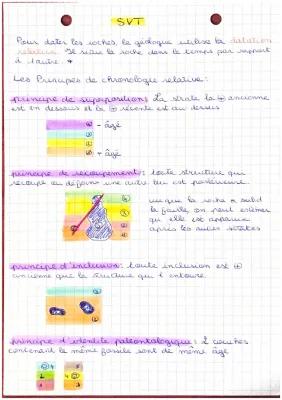 SVT
Pour dater les roches, le géologue utilise la datation
relative. Il situe la roche dans le temps par rapport
à l'autre.
Les Principes de chronologie relative :
principe de superposition : La strate la ⊕ ancienne
est en dessous et la ⊕ récente est au dessus
- âgé
+ âgé
principe de recoupement : toute structure qui
recoupe ou déforme une autre lui est postérieure.
vu que la roche a subi
la faille, on peut estimer
qu'elle est apparue
après les autres strates
principe d'inclusion : toute inclusion est ⊕
ancienne que la structure qui l'entoure.
principe d'identité paléontologique : 2 couches
contenant le même fossile sont de même âge